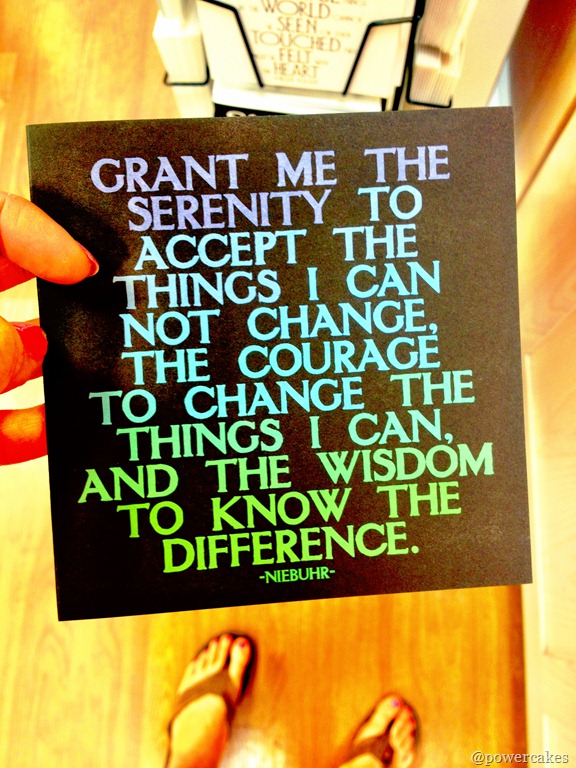 WORLD
SEEN
TOUCHED
FELT
HEART
GRANT ME THE
SERENITY TO
ACCEPT THE
THINGS I CAN
NOT CHANGE,
THE COURAGE
TO CHANGE THE
THINGS I CAN,
AND THE WISDOM
TO KNOW THE
DIFFERENCE.
-NIEBUHR-
@powercakes